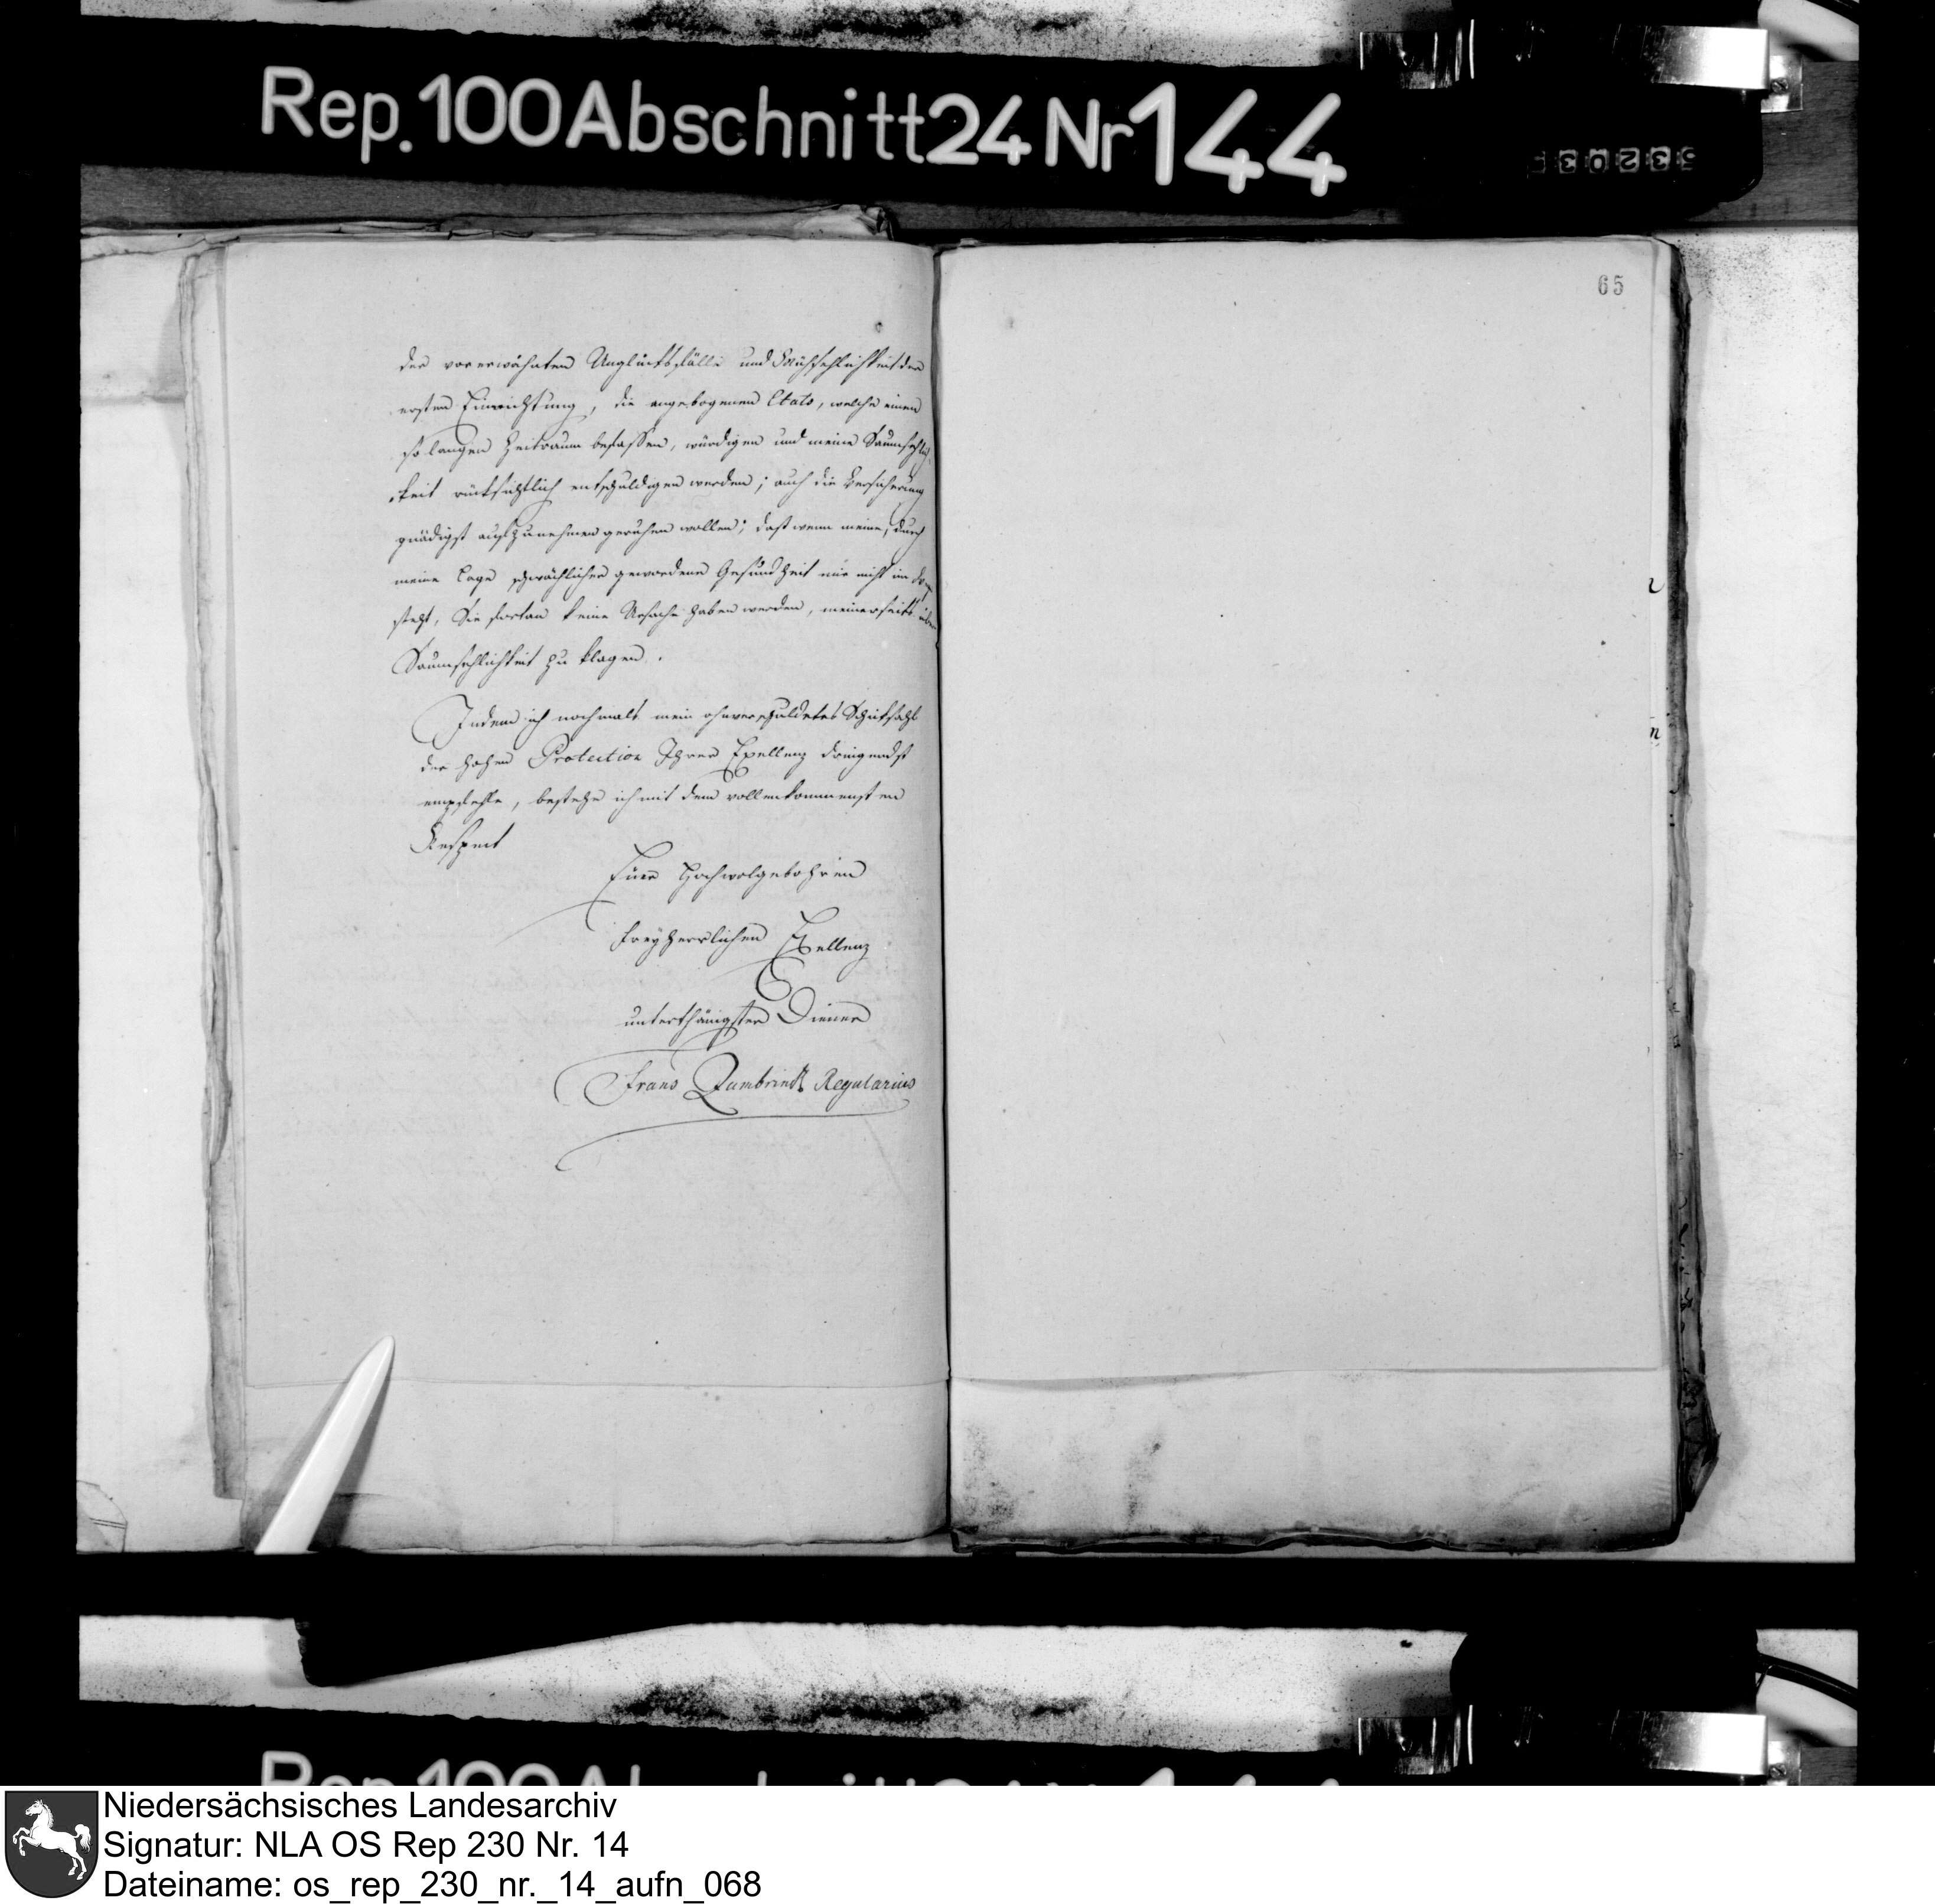 Rep. 100 Abschnitt 24 Nr 144
65
der vorerwähnten Unglücksfälle und der
ersten Einrichtung, die angebogenen Etats, welche einen
so langen Zeitraum befassen, würdigen und meine Saumsehlig-
keit rücksichtlich entschuldigen werden; auch die Versicherung
gnädigst aufzunehmen geruhen wollen; dast wenn meine, durch
meine Lage schwächlicher gewordene Gesundheit mir nicht im
steht, Sie fortan keine Ursache haben werden, meinerseits über
Saumsehlichkeit zu klagen.
Indem ich nochmals mein ohnverschuldetes Schicksahl
der hohen Protection Ihrer Exellenz dringendst
empfehle, bestehe ich mit dem vollenkommensten
Respect
Euer Hochwolgebohren
Freyherrlichen Exellenz
unterthänigster Diener
Frans Zumbrink Regularius
Niedersächsisches Landesarchiv
Signatur: NLA OS Rep 230 Nr. 14
Dateiname: os_rep_230_nr._14_aufn_068